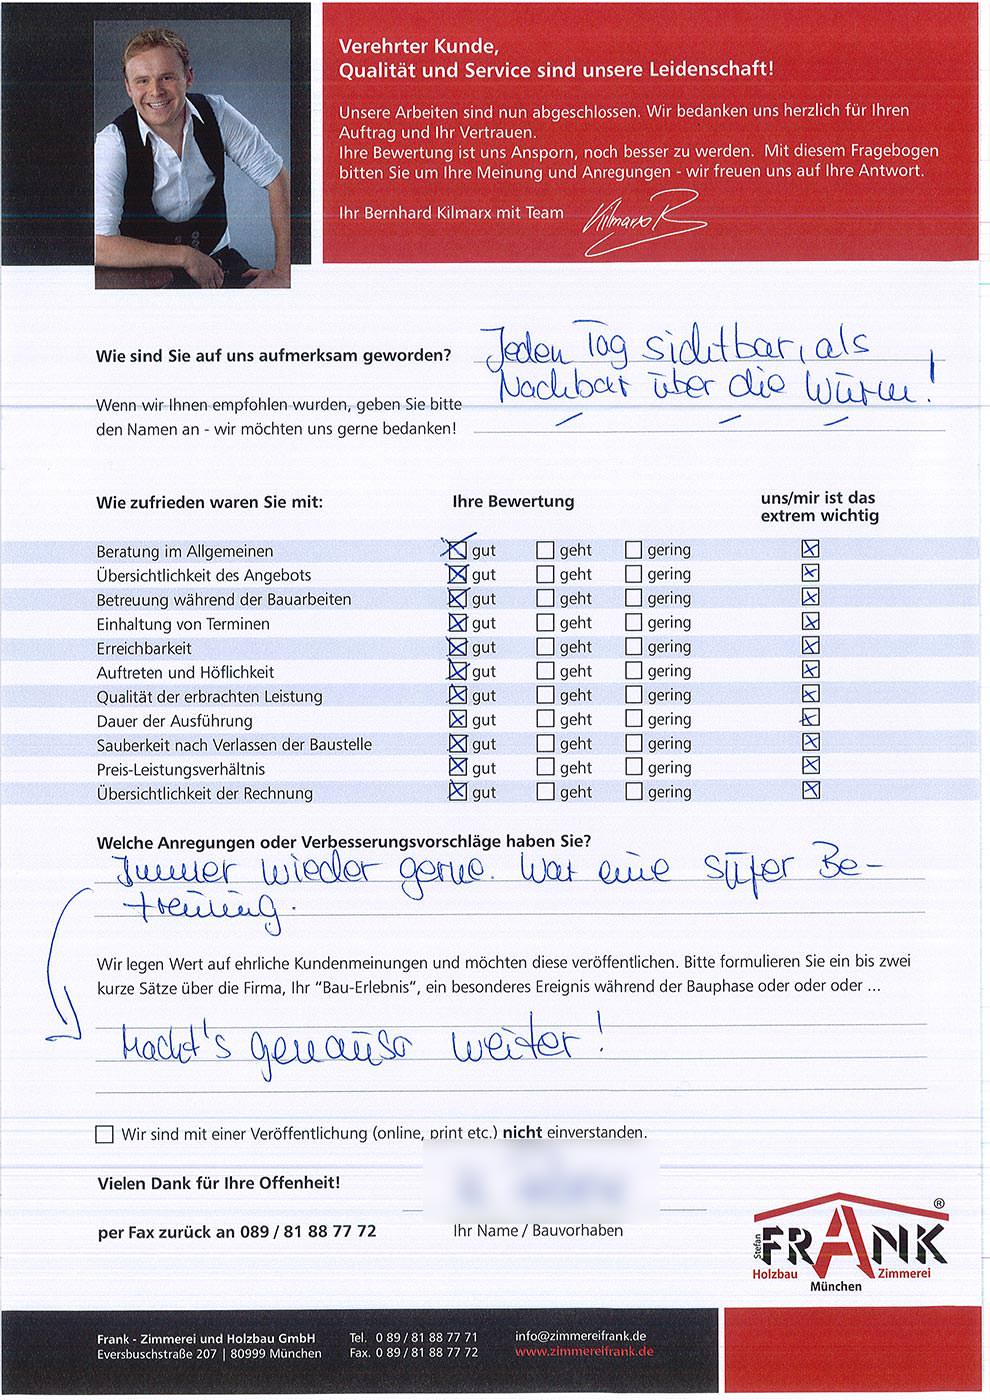 Verehrter Kunde,
Qualität und Service sind unsere Leidenschaft!
Unsere Arbeiten sind nun abgeschlossen. Wir bedanken uns herzlich für Ihren
Auftrag und Ihr Vertrauen.
Ihre Bewertung ist uns Ansporn, noch besser zu werden. Mit diesem Fragebogen
bitten Sie um Ihre Meinung und Anregungen - wir freuen uns auf Ihre Antwort.
Ihr Bernhard Kilmarx mit Team Kilmarx B
Wie sind Sie auf uns aufmerksam geworden?
Jeden Tag sichtbar, als
Nachbar über die Würm!
Wenn wir Ihnen empfohlen wurden, geben Sie bitte
den Namen an - wir möchten uns gerne bedanken!
Wie zufrieden waren Sie mit: Ihre Bewertung uns/mir ist das
extrem wichtig
Beratung im Allgemeinen gut geht gering
Übersichtlichkeit des Angebots gut geht gering
Betreuung während der Bauarbeiten gut geht gering
Einhaltung von Terminen gut geht gering
Erreichbarkeit gut geht gering
Auftreten und Höflichkeit gut geht gering
Qualität der erbrachten Leistung gut geht gering
Dauer der Ausführung gut geht gering
Sauberkeit nach Verlassen der Baustelle gut geht gering
Preis-Leistungsverhältnis gut geht gering
Übersichtlichkeit der Rechnung gut geht gering
Welche Anregungen oder Verbesserungsvorschläge haben Sie?
Immer wieder gerne. War eine super Be-
treuung.
Wir legen Wert auf ehrliche Kundenmeinungen und möchten diese veröffentlichen. Bitte formulieren Sie ein bis zwei
kurze Sätze über die Firma, Ihr "Bau-Erlebnis", ein besonderes Ereignis während der Bauphase oder oder oder ...
Macht's genauso weiter!
Wir sind mit einer Veröffentlichung (online, print etc.) nicht einverstanden.
Vielen Dank für Ihre Offenheit!
per Fax zurück an 089 / 81 88 77 72 Ihr Name / Bauvorhaben
Stefan FRANK ®
Holzbau Zimmerei
München
Frank - Zimmerei und Holzbau GmbH Tel. 0 89 / 81 88 77 71 info@zimmereifrank.de
Eversbuschstraße 207 | 80999 München Fax. 0 89 / 81 88 77 72 www.zimmereifrank.de